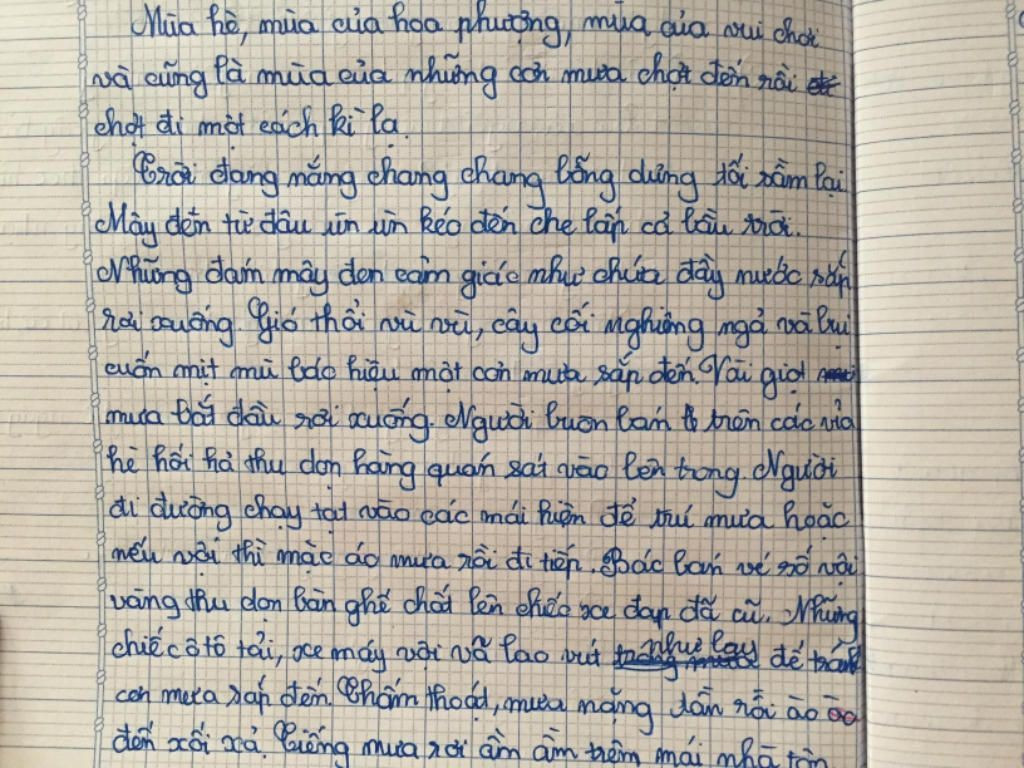 Mùa hè, mùa của hoa phượng, mùa của vui chơi
và cũng là mùa của những cơn mưa chợt đến rồi
chợt đi một cách kì lạ.
Trời đang nắng chang chang bỗng dưng tối sầm lại
Mây đến từ đâu ùn ùn kéo đến che lấp cả bầu trời.
Những đám mây đen cảm giác như chứa đầy nước sắp
rơi xuống. Gió thổi vù vù, cây cối nghiêng ngả và bụi
cuốn mịt mù báo hiệu một cơn mưa sắp đến. Vài giọt
mưa bắt đầu rơi xuống. Người buôn bán trên các vỉa
hè hối hả thu dọn hàng quán sát vào bên trong. Người
đi đường chạy tạt vào các mái hiện để trú mưa hoặc
nếu vội thì mặc áo mưa rồi đi tiếp. Bác bán vé số vội
vàng thu dọn bàn ghế chất lên chiếc xe đạp đã cũ. Những
chiếc ô tô tải, xe máy vội vã lao vút như bay để tránh
cơn mưa sắp đến. Thấm thoát, mưa nặng dần rồi ào ào
đến xối xả. Tiếng mưa rơi ầm ầm trêm mái nhà tôn